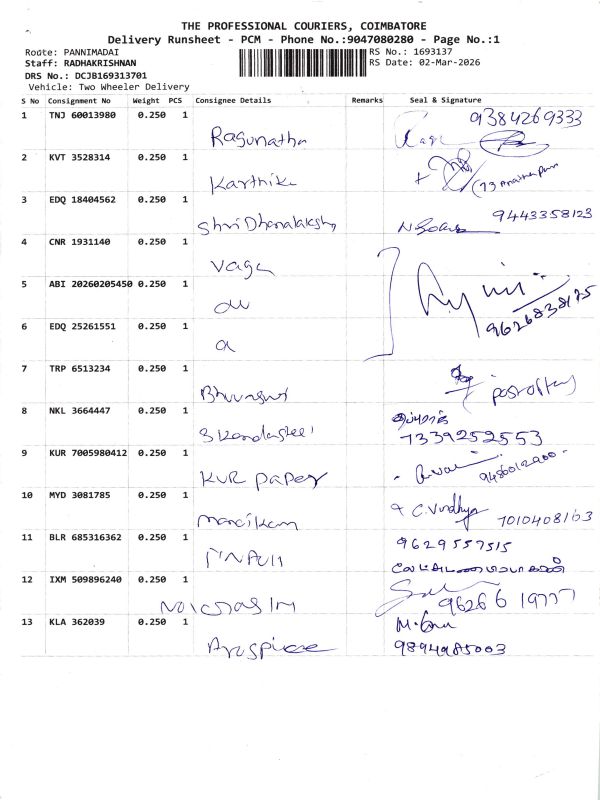 THE PROFESSIONAL COURIERS, COIMBATORE
Delivery Runsheet - PCM - Phone No.:9047080280 - Page No.:1
Route: PANNIMADAI
RS No.: 1693137
Staff: RADHAKRISHNAN
RS Date: 02-Mar-2026
DRS No.: DCJB169313701
Vehicle: Two Wheeler Delivery
S No Consignment No Weight PCS Consignee Details Remarks Seal & Signature
1 TNJ 60013980 0.250 1 9384269333
Ragunatha
2 KVT 3528314 0.250 1
Karthika
3 EDQ 18404562 0.250 1 9443358123
Shri Dhanalaksh
4 CNR 1931140 0.250 1
Vaga
5 ABI 20260205450 0.250 1
du
9626838175
6 EDQ 25261551 0.250 1
a
7 TRP 6513234 0.250 1
8 NKL 3664447 0.250 1
7339252553
9 KUR 7005980412 0.250 1
KUR paper
10 MYD 3081785 0.250 1 C. Vindhya 7010408163
manikam
11 BLR 685316362 0.250 1 9629557515
12 IXM 509896240 0.250 1
96266 19777
13 KLA 362039 0.250 1
9894985003